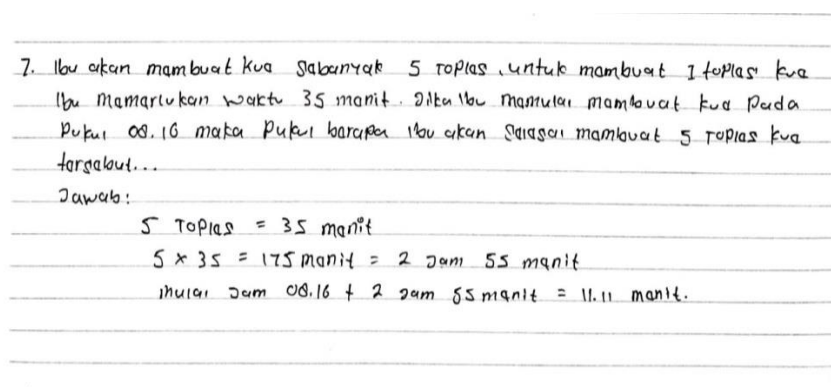 7. Ibu akan membuat kue sebanyak 5 Toples, untuk membuat 1 toples kue
Ibu memerlukan waktu 35 menit. Jika Ibu memulai membuat kue pada
Pukul 08.16 maka Pukul berapa ibu akan selesai membuat 5 Toples kue
tersebut...
Jawab:
5 Toples = 35 menit
5 x 35 = 175 menit = 2 Jam 55 menit
mulai Jam 08.16 + 2 Jam 55 menit = 11.11 menit.